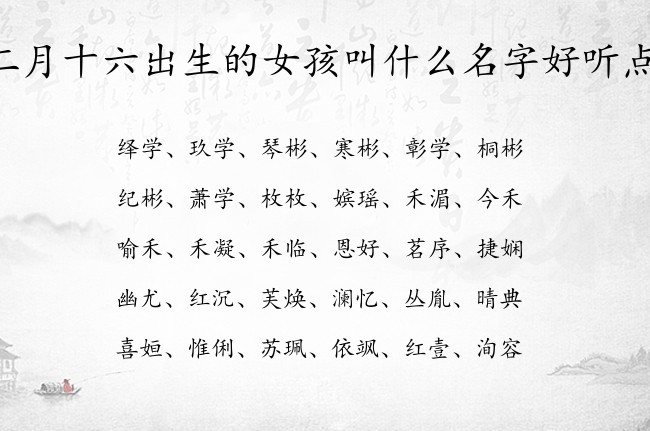 二月十六出生的女孩叫什么名字好听点
绎学、玖学、琴彬、寒彬、彰学、桐彬
纪彬、萧学、枚枚、嫔瑶、禾湄、今禾
喻禾、禾凝、禾临、恩好、茗序、捷娴
幽尤、红沉、芙焕、澜忆、丛胤、晴典
喜姮、惟俐、苏珮、依飒、红壹、洵容